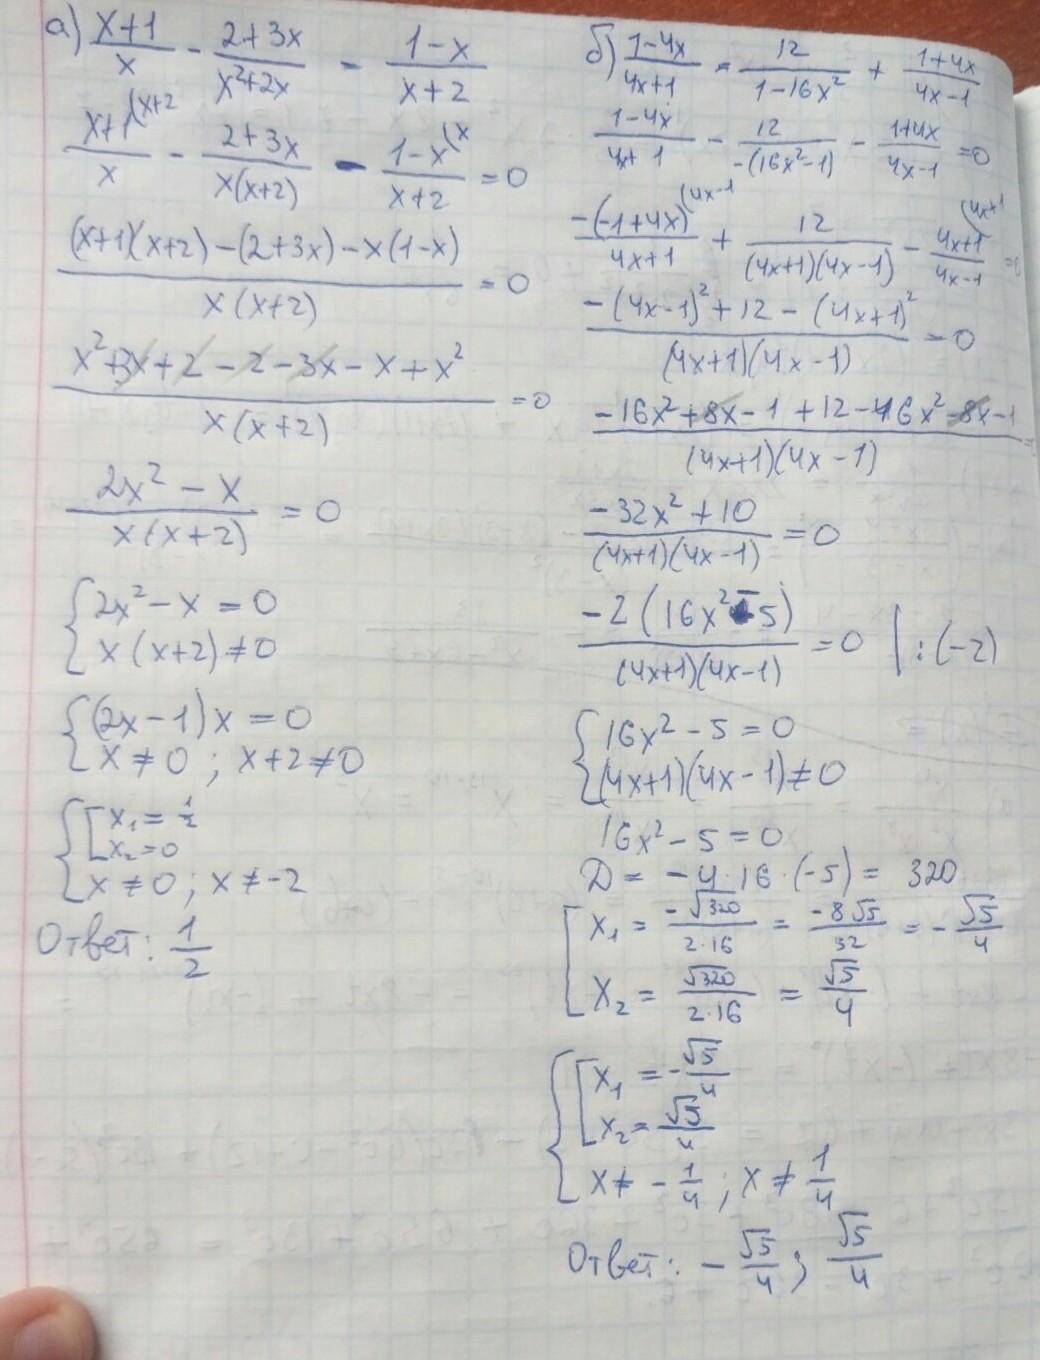 а) (x+1)/x - (2+3x)/(x²+2x) = (1-x)/(x+2)
(x+1)/x ⁽ˣ⁺² - (2+3x)/(x(x+2)) - (1-x)/(x+2) ⁽ˣ = 0
((x+1)(x+2) - (2+3x) - x(1-x))/(x(x+2)) = 0
(x²+3x+2-2-3x-x+x²)/(x(x+2)) = 0
(2x² - x)/(x(x+2)) = 0
{ 2x² - x = 0
x(x+2) ≠ 0
{ (2x-1)x = 0
x ≠ 0 ; x+2 ≠ 0
{ [ x₁ = 1/2
x₂ = 0
x ≠ 0 ; x ≠ -2
Ответ: 1/2
б) (1-4x)/(4x+1) = 12/(1-16x²) + (1+4x)/(4x-1)
(1-4x)/(4x+1) - 12/(-(16x²-1)) - (1+4x)/(4x-1) = 0
-(-1+4x)/(4x+1) ⁽⁴ˣ⁻¹ + 12/((4x+1)(4x-1)) - (4x+1)/(4x-1) ⁽⁴ˣ⁺¹ = 0
(-(4x-1)² + 12 - (4x+1)²)/((4x+1)(4x-1)) = 0
(-16x²+8x-1+12-16x²-8x-1)/((4x+1)(4x-1)) =
(-32x²+10)/((4x+1)(4x-1)) = 0
-2(16x²-5)/((4x+1)(4x-1)) = 0 | :(-2)
{ 16x² - 5 = 0
(4x+1)(4x-1) ≠ 0
16x² - 5 = 0
D = -4·16·(-5) = 320
[ x₁ = -√320/(2·16) = -8√5/32 = -√5/4
x₂ = √320/(2·16) = √5/4
{ [ x₁ = -√5/4
x₂ = √5/4
x ≠ -1/4 ; x ≠ 1/4
Ответ: -√5/4 ; √5/4